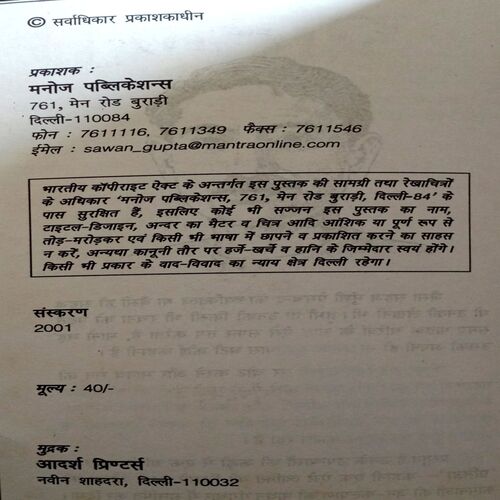 © सर्वाधिकार प्रकाशकाधीन
प्रकाशक :
मनोज पब्लिकेशन्स
761, मेन रोड बुराड़ी
दिल्ली-110084
फोन : 7611116, 7611349 फैक्स : 7611546
ईमेल : sawan_gupta@mantraonline.com
भारतीय कॉपीराइट ऐक्ट के अन्तर्गत इस पुस्तक की सामग्री तथा रेखाचित्रों
के अधिकार 'मनोज पब्लिकेशन्स, 761, मेन रोड बुराड़ी, दिल्ली-84' के
पास सुरक्षित हैं, इसलिए कोई भी सज्जन इस पुस्तक का नाम,
टाइटल-डिजाइन, अन्दर का मैटर व चित्र आदि आंशिक या पूर्ण रूप से
तोड़-मरोड़कर एवं किसी भी भाषा में छापने व प्रकाशित करने का साहस
न करें, अन्यथा कानूनी तौर पर हर्जे-खर्चे व हानि के जिम्मेदार स्वयं होंगे।
किसी भी प्रकार के वाद-विवाद का न्याय क्षेत्र दिल्ली रहेगा।
संस्करण
2001
मूल्य : 40/-
मुद्रक :
आदर्श प्रिण्टर्स
नवीन शाहदरा, दिल्ली-110032